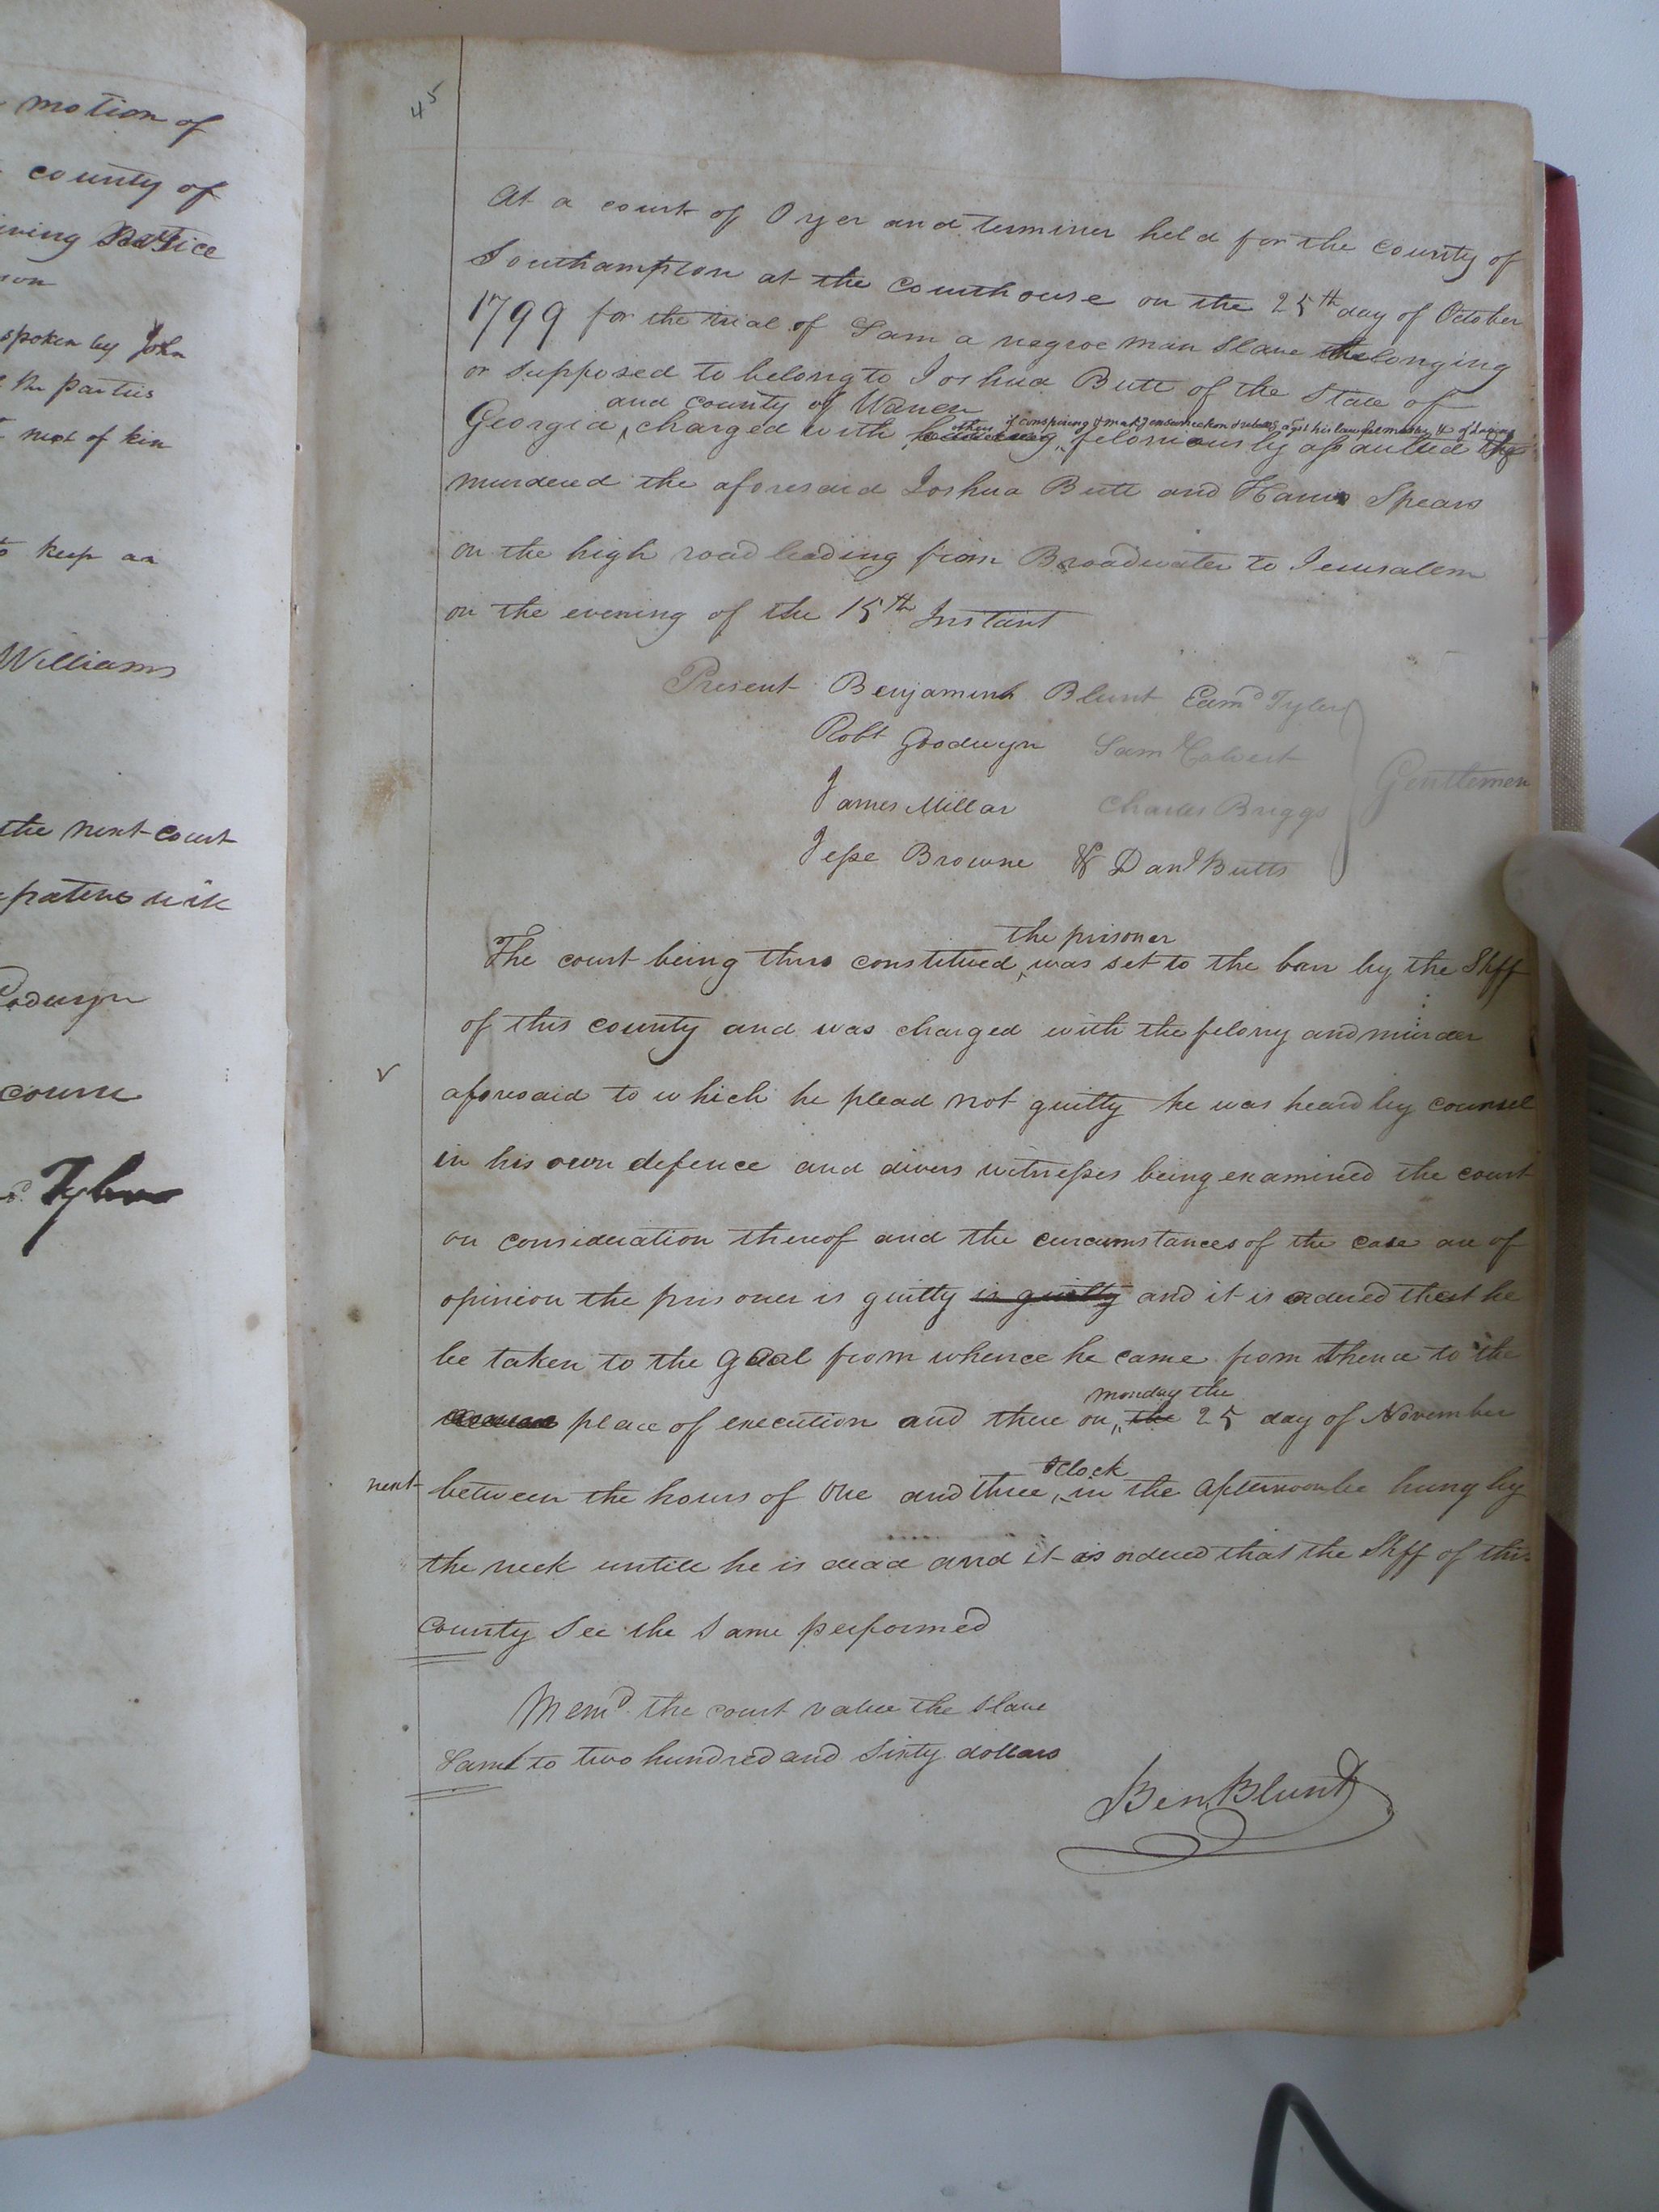 motion of
county of
Justice
spoken by John
the parties
next of kin
to keep an
Williams
the next court
Godwyn
Tyler
45
At a court of Oyer and terminer held for the county of
Southampton at the Courthouse on the 25th day of October
1799 for the trial of Sam a negroe man Slave belonging
or supposed to belong to Joshua Butt of the State of
and county of Warren
others of conspiring & makg insurrection & rebellg agst his lawful master & of
Georgia, charged with feloniously assaulted &
murdered the aforesaid Joshua Butt and Harris Spears
on the high road leading from Broadwater to Jerusalem
on the evening of the 15th Instant
Present Benjamin Blunt Edmd Tyler
Robt Goodwyn Sam Calvert
James Millar Charles Briggs
Gentlemen
Jesse Browne & Danl Butts
the prisoner
The court being thus constitued, was set to the barr by the Shff
of this county and was charged with the felony and murder
aforesaid to which he plead not guilty he was heard by counsel
in his own defence and divers witnesses being examined the court
on consideration thereof and the curcumstances of the case are of
opinion the prisoner is guilty is guilty and it is ordered that he
be taken to the goal from whence he came from thence to the
monday the
place of execution and there on, the 25 day of November
oclock
next between the hours of one and three, in the afternoon be hung by
the neck untill he is dead and it is ordered that the Shff of this
County See the Same performed
Memd. the court value the slave
Sam to two hundred and Sixty dollars
Ben. Blunt